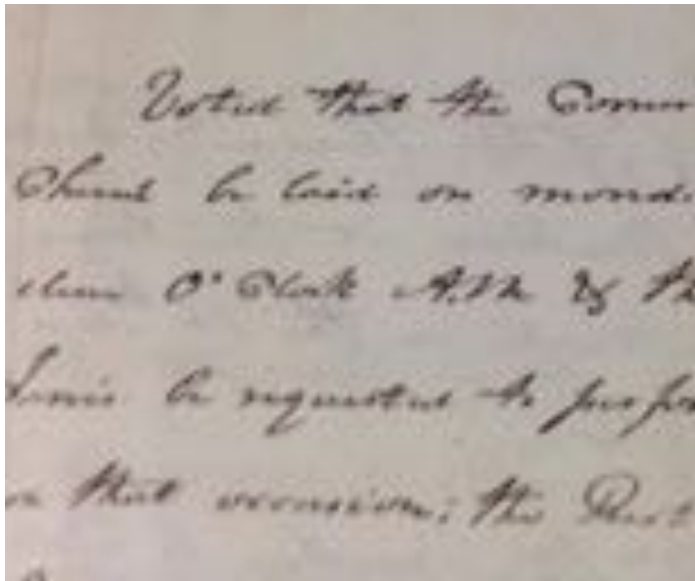 Voted that the Corner
Church be laid on mond
O' Clock A.M & th
be requested to perfor
on that occasion; the Rect